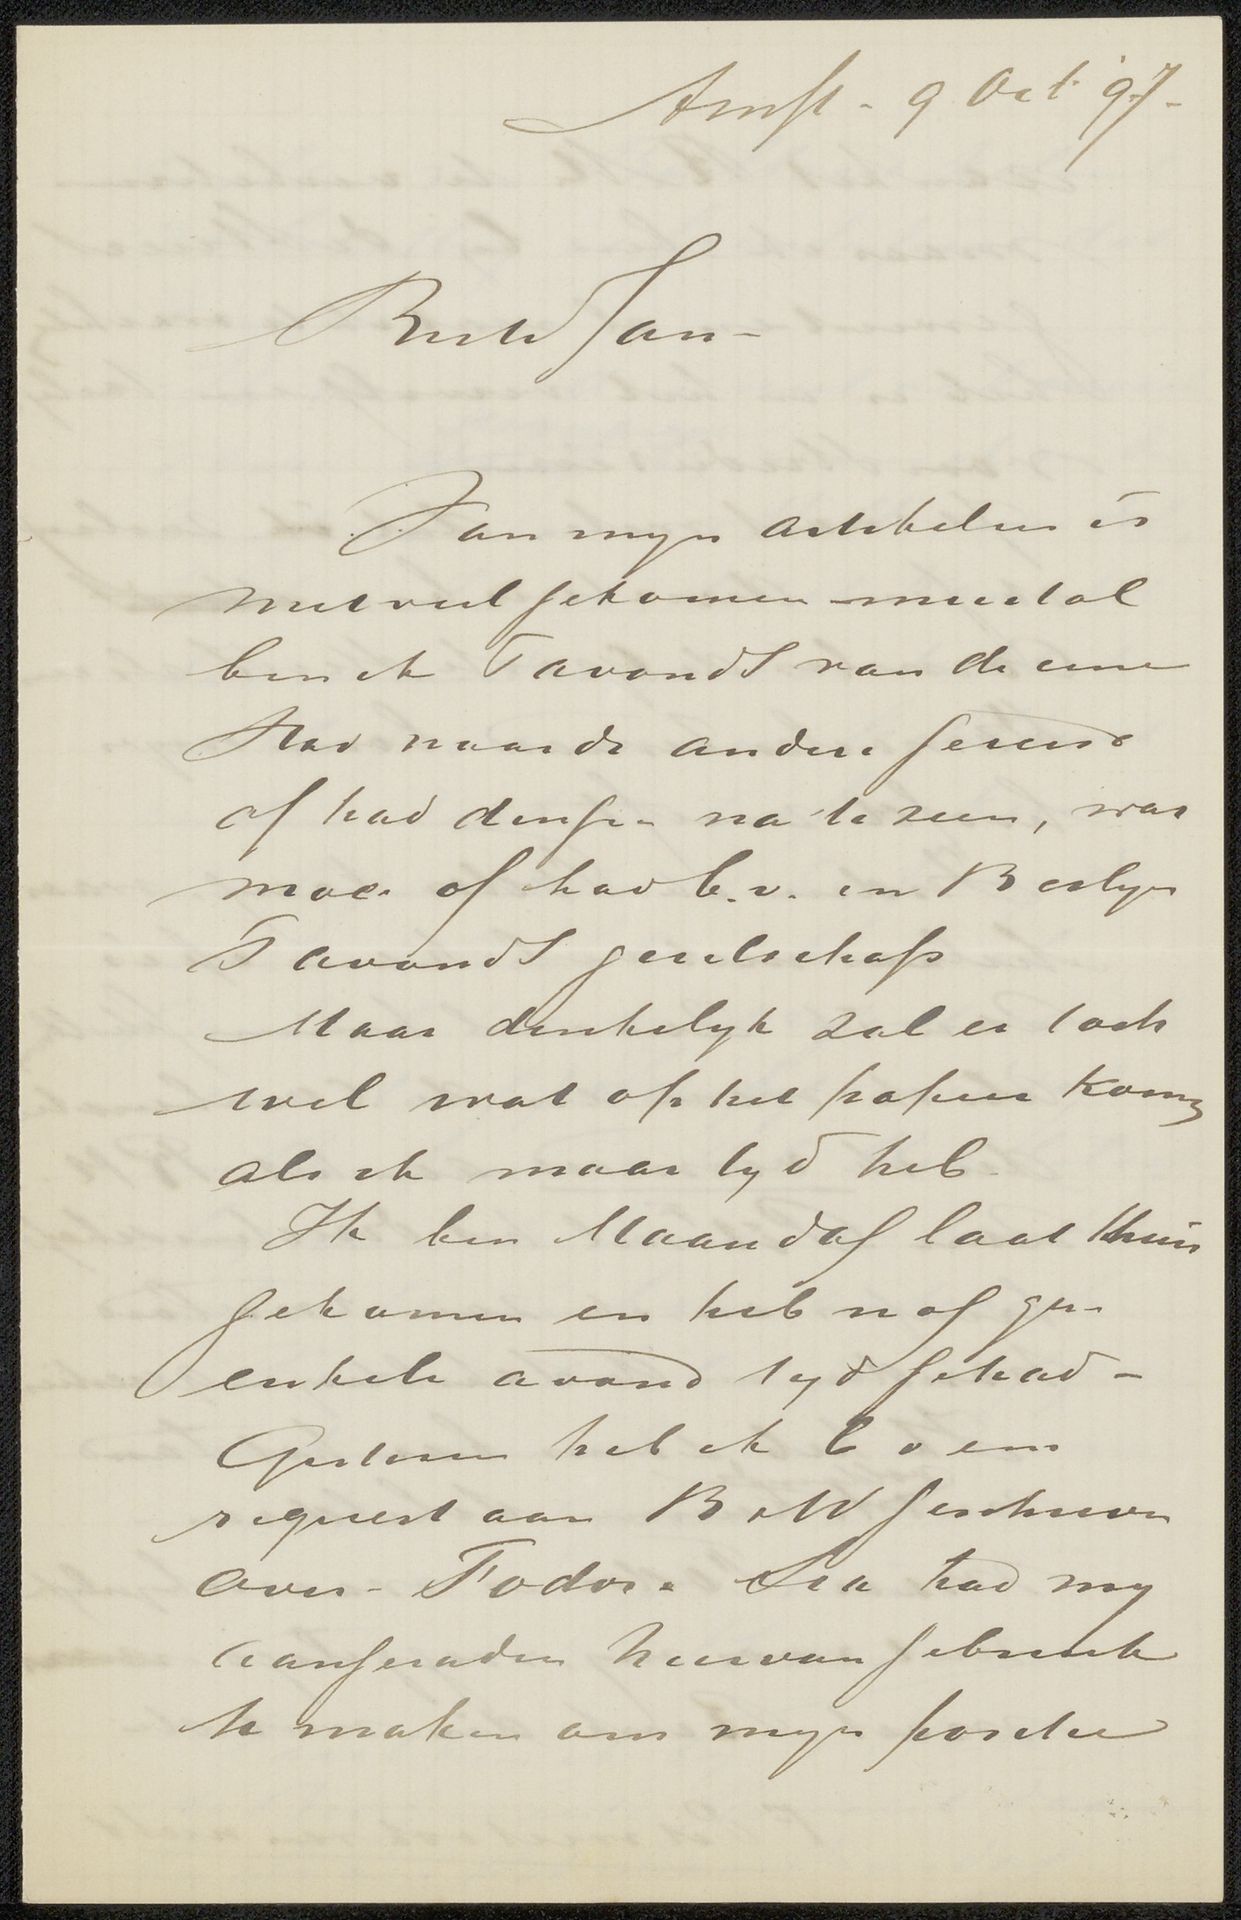 Amst - 9 Oct '97 -
Beste Jan -
Van myn artikelen is
niet veel gekomen - meestal
ben ik 's avonds van de eene
stad naar de andere gereisd
of had dingen na te zien, was
moe of had b.v. in Berlyn
's avonds gezelschap
Maar denkelyk zal er toch
wel wat op het papier komen
als ik maar tyd heb -
Ik ben Maandag laat thuis
gekomen en heb nog geen
enkele avond tyd gehad -
Gisteren heb ik een
request aan B & W geschreven
over - Fodor. had my
aangeraden hiervan gebruik
te maken om myn positie